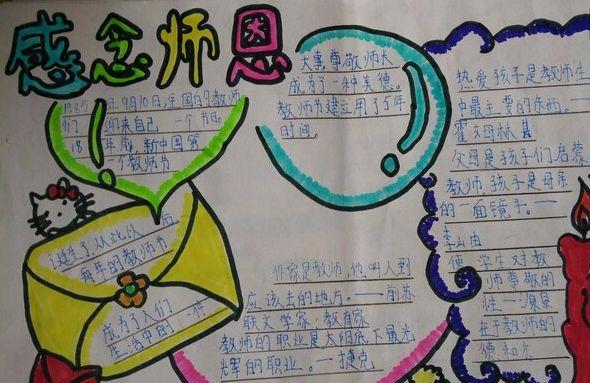 感念师恩
1985 年9月10日,全国的教师
们 迎来自己 一个节日。
18 年前,新中国第
一个教师节
诞生了,从此以 后
每年的教师节
成为了人们
生活中的 一种
大事尊敬师长
成为了一种美德。
教师节建立用了5年
时间。
作家是教师,他叫人到
应该去的地方。——前苏
联文学家,教育家
教师的职业是太阳底下最光
辉的职业。——捷克
热爱孩子是教师生
中最主要的东西。——
霍姆林
父母是孩子们启蒙
教师,孩子是母亲
的一面镜子。——
李山由
使 学生对教
师尊敬的
唯一源泉
在于教师的
德和才